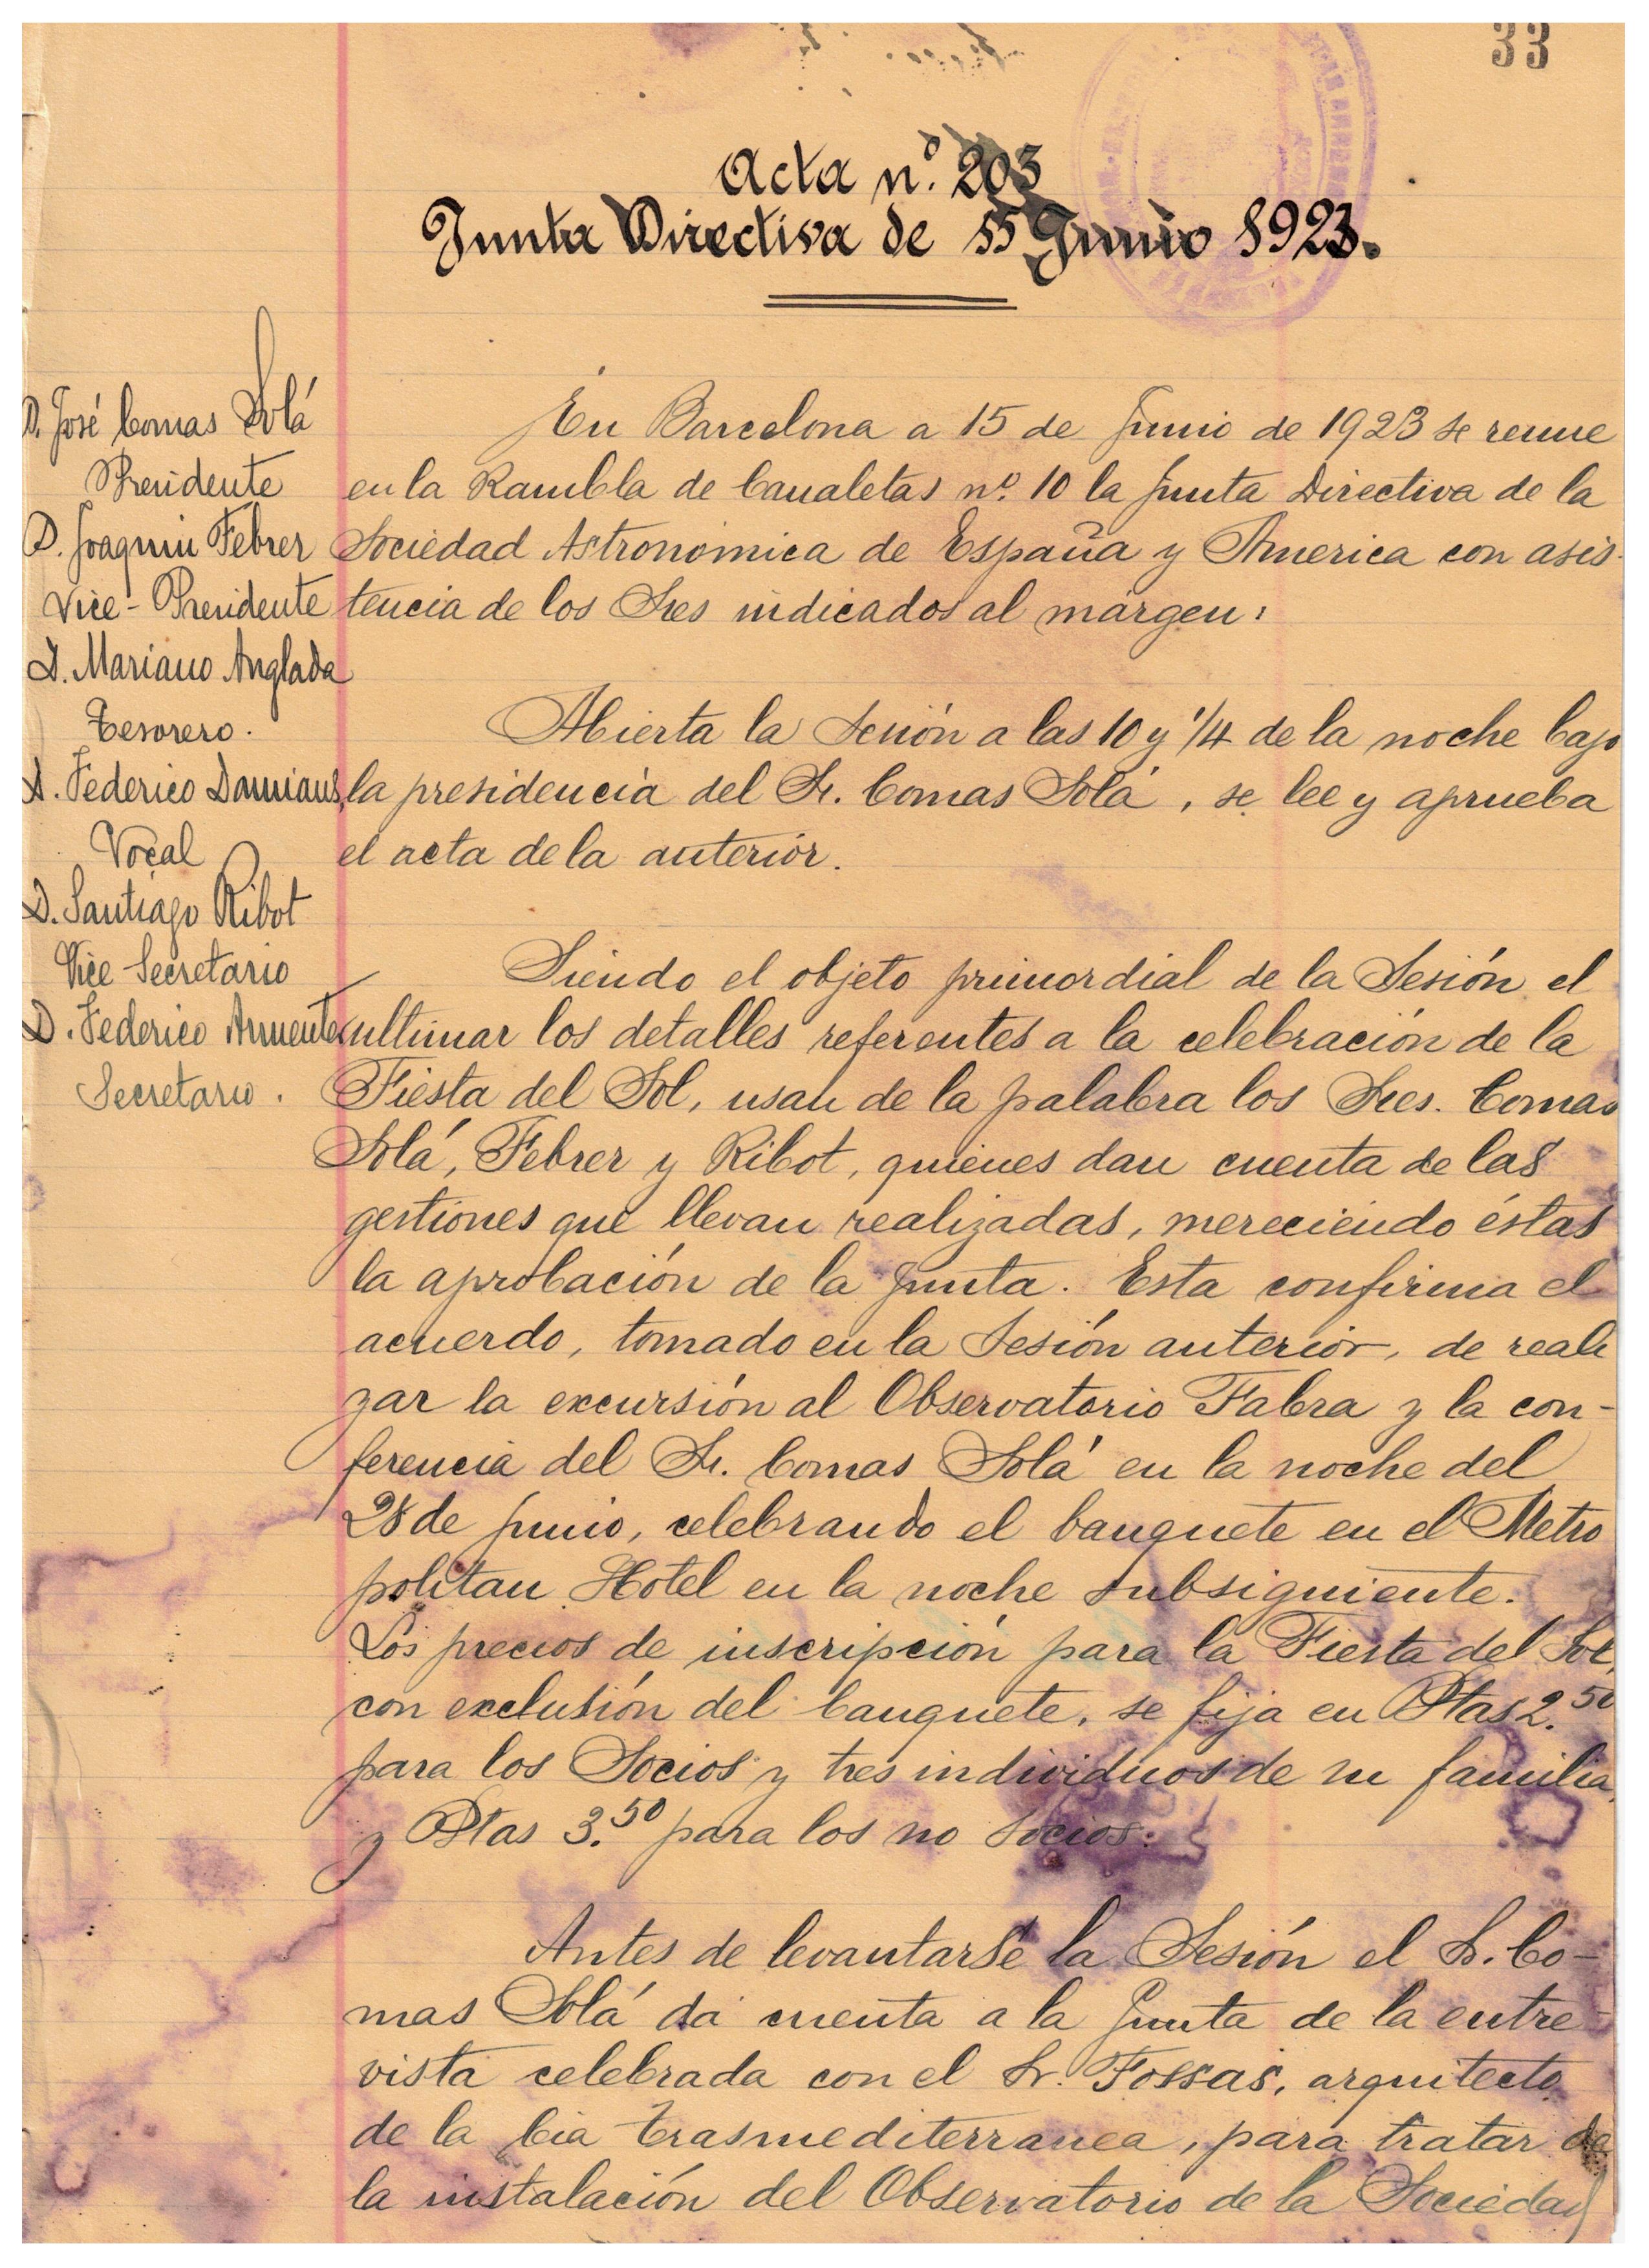 33
Acta n.º 203
Junta Directiva de 15 Junio 1923.
D. José Comas Solá
Presidente
D. Joaquin Febrer
Vice-Presidente
D. Mariano Anglada
Tesorero.
D. Federico Damians,
Vocal
D. Santiago Ribot
Vice-Secretario
D. Federico Armenter
Secretario.
En Barcelona a 15 de Junio de 1923 se reune
en la Rambla de Canaletas nº. 10 la Junta Directiva de la
Sociedad Astronómica de España y America con asis-
tencia de los Sres indicados al márgen:
Abierta la Sesión a las 10 y 1/4 de la noche bajo
la presidencia del Sr. Comas Solá, se lee y aprueba
el acta de la anterior.
Siendo el objeto primordial de la Sesión el
ultimar los detalles referentes a la celebración de la
Fiesta del Sol, usan de la palabra los Sres. Comas
Solá, Febrer y Ribot, quienes dan cuenta de las
gestiones que llevan realizadas, mereciendo éstas
la aprobación de la Junta. Esta confirma el
acuerdo, tomado en la Sesión anterior, de reali
zar la excursión al Observatorio Fabra y la con-
ferencia del Sr. Comas Solá en la noche del
28 de Junio, celebrando el banquete en el Metro
politan Hotel en la noche subsiguiente.
Los precios de inscripción para la Fiesta del Sol,
con exclusión del banquete, se fija en Ptas 2.50
para los Socios y tres individuos de su familia,
y Ptas 3.50 para los no socios.
Antes de levantarse la Sesión el Sr. Co-
mas Solá dá cuenta a la Junta de la entre-
vista celebrada con el Sr. Fossas, arquitecto
de la Cia Trasmediterranea, para tratar de
la instalación del Observatorio de la Sociedad